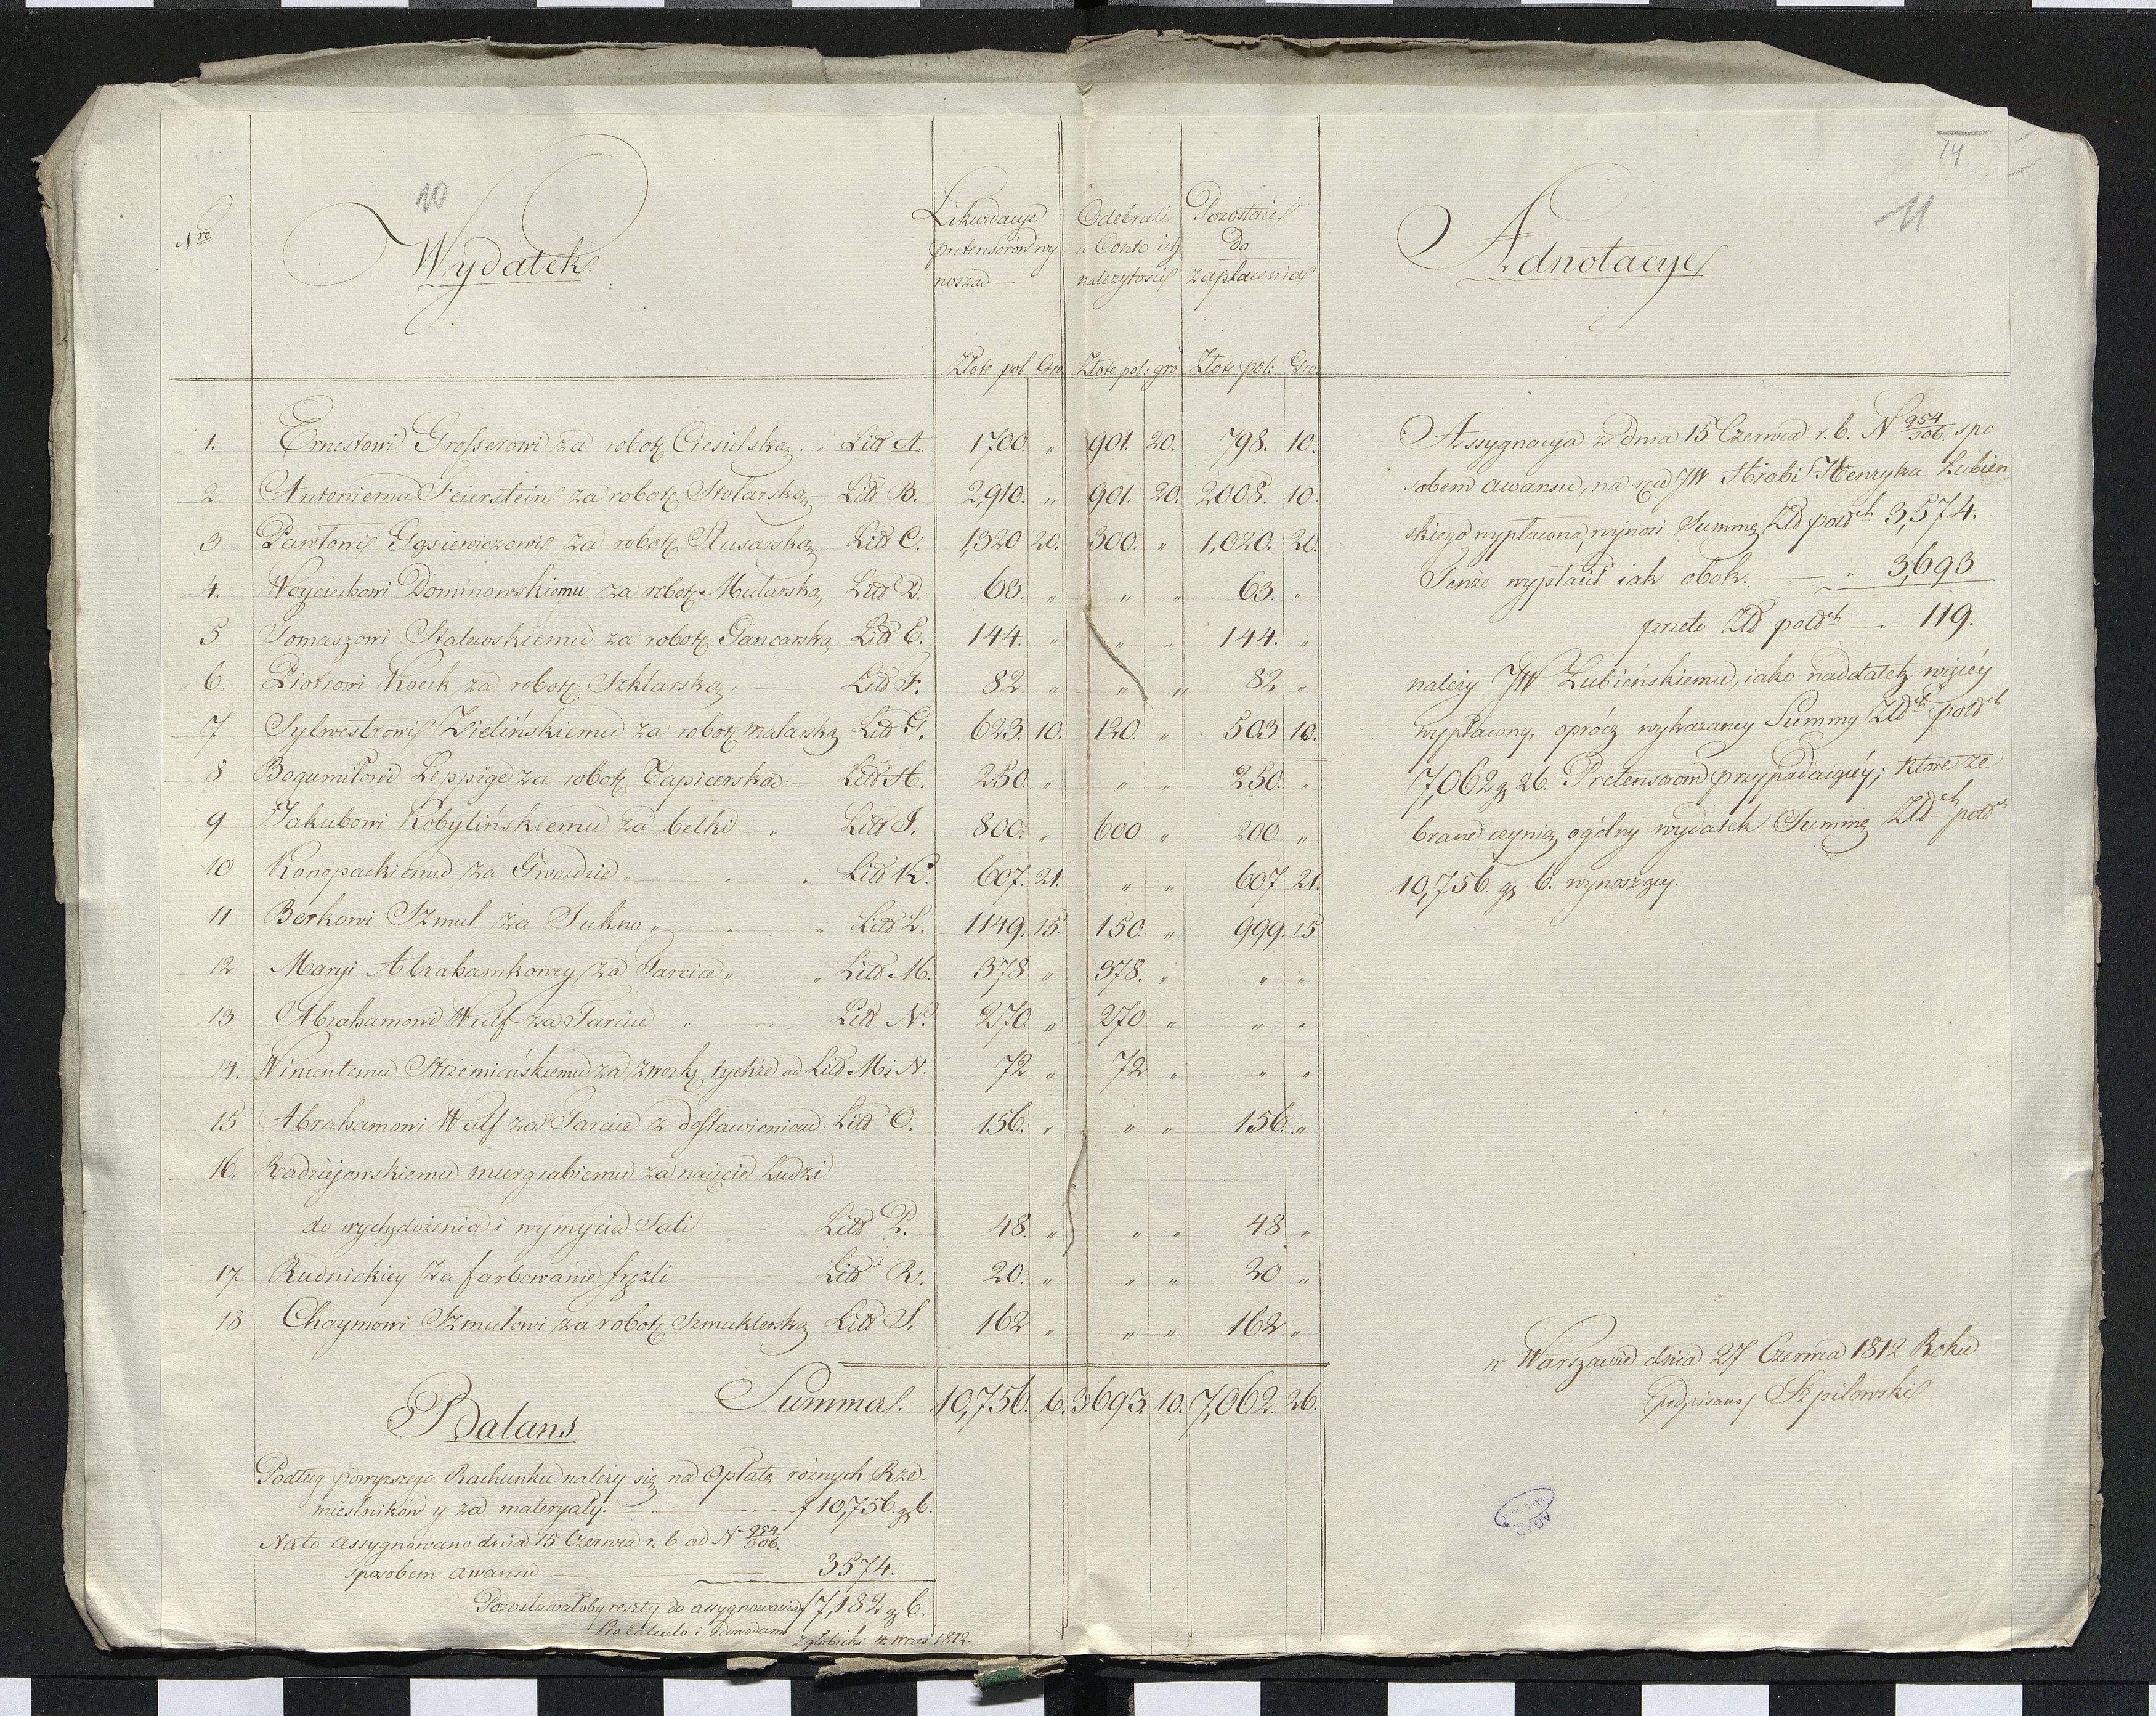 10
14
11
Nro
Wydatek
Likwidacye pretensorów wynoszą
Odebrali a Conto ich należytości
Pozostaie do zapłacenia
Adnotacye
Złote pol Gro Złote pol: gro Złote pol: Gro.
1. Ernestowi Grosserowi za robotę Ciesielską. " Litt A. 1700. " 901. 20. 798. 10.
2 Antoniemu Feierstein za robotę Stolarską Litt B. 2,910. " 901. 20. 2,008. 10.
3 Pawłowi Gąsiewiczowi za robotę Slusarską Litt C. 1,320 20. 300. " 1,020. 20.
4. Woyciechowi Dominowskiemu za robotę Mularską Litt D. 63. " " " 63. "
5 Tomaszowi Stalewskiemu za robotę Gancarską Litt E. 144. " " " 144. "
6. Piotrowi Kocik za robotę Szklarską. Litt F. 82. " " " 82 "
7 Sylwestrowi Zielińskiemu za robotę malarską Litt G. 623. 10. 120. " 503 10.
8 Bogumiłowi Leppige za robotę Tapicerską Litt H. 250. " " " 250. "
9 Jakubowi Kobylińskiemu za belki " Litt I. 800. " 600 " 200 "
10 Konopackiemu za Gwozdzie " . Litt K. 607. 21. " " 607 21.
11 Berkowi Szmul za Sukno " " Litt L. 1149. 15. 150. " 999. 15
12 Maryi Abrahamkowey za Tarcice " " Litt M. 378 " 378. " " "
13 Abrahamowi Wulf za Tarcice " Litt N. 270. " 270 " " "
14. Wincentemu Strzemieńskiemu za zwozkę tychże ad Litt M i N. 72 " 72 " " "
15 Abrahamowi Wulf za Tarcice z dostawieniem. Litt O. 156. " " " 156. "
16. Radziejowskiemu murgrabiemu za naięcie Ludzi
do wychędożenia i wymycia Sali Litt P. 48. " " " 48 "
17 Rudnickiey za farbowanie fręzli Litt R. 20. " " " 20 "
18 Chaymowi Szmulowi za robotę Szmuklerską Litt S. 162 " " " 162 "
Summa. 10,756. 6. 3693. 10. 7,062. 26.
Balans
Podług powyższego Rachunku należy się na Opłatę rożnych Rze-
mieslników y za materyały. f 10,756. g 6.
Na to assygnowano dnia 15 Czerwca r. b ad N 954/306.
sposobem awansu 3574.
Pozostawałoby reszty do assygnowania f 7,182 g 6.
Pro Calculo i dowodami
Zgłobicki 4. Wrześ 1812.
Assygnacya z dnia 15 Czerwca r. b. N 954/306. spo-
sobem awansu, na ręce JW Hrabi Henryka Łubień
skiego wypłacona, wynosi Summę Zld pold ch 3,574.
Tenże wypłacił iak obok. " 3,693
przeto Zld pold ch " 119.
należy JW Łubieńskiemu, iako naddatek więcéy
wypłacony, oprócz wykazaney Summy Zld ch pold ch
7,062 g 26. Pretensorom przypadaiącéy; ktore ze
brane czynią ogólny wydatek Summę Zld ch pold ch
10,756. g 6. wynoszący.
w Warszawie dnia 27 Czerwca 1812 Roku
podpisano Szpilowski
AGAD